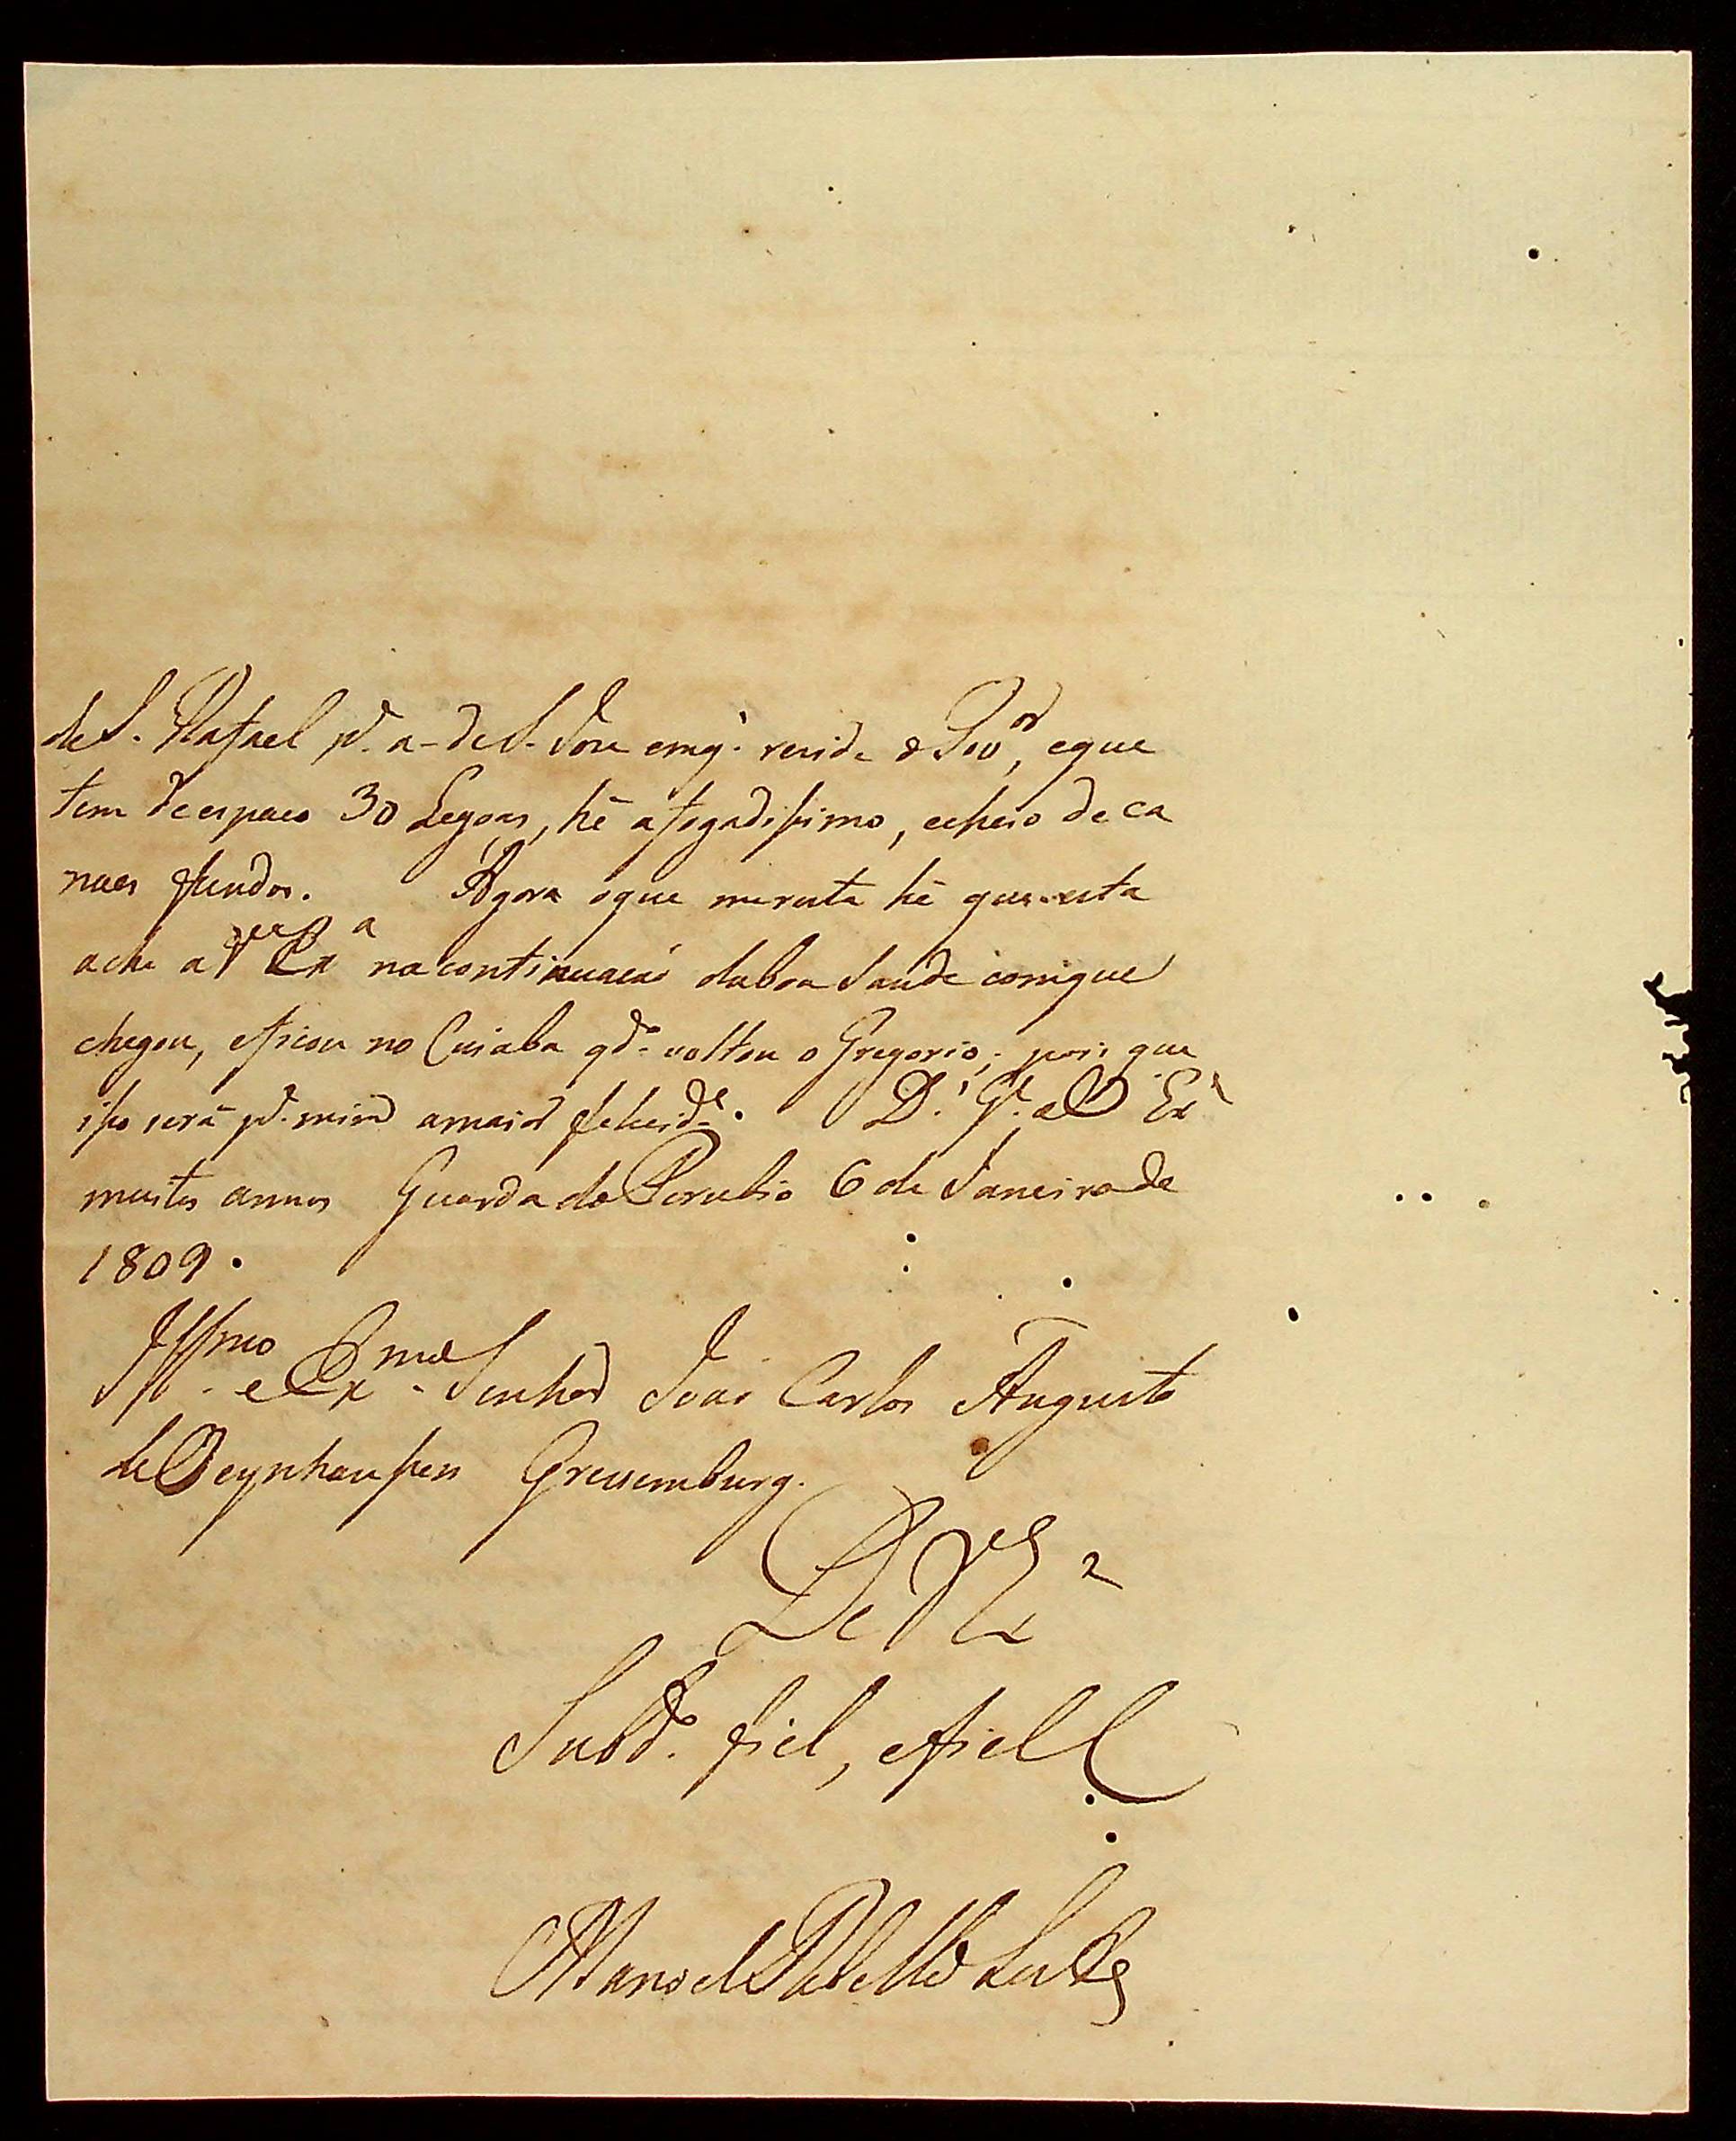 de S. Rafael pª. a-de S. Joze emq'. rezide o Govor, eque
tem deespaco 30 Legoas, hé afogadissimo, echeio de ca
naes fundos. Agora oque meresta hé que esta
ache a V Exa na continuacaó daboa Saude comque
chegou, eficou no Cuiaba qdo. voltou o Gregorio; pois que
isso será pª. mim amaior felicide. Ds. Ge. a V Exa
muitos annos Guarda do 6 de Janeiro de
1809.
Illmo. e Exmo. Senhor Joaó Carlos Augusto
de Oeynhaussen Grevemburg.
De V Exa
Subdo. fiel, efiel
Manoel Rebello Leite